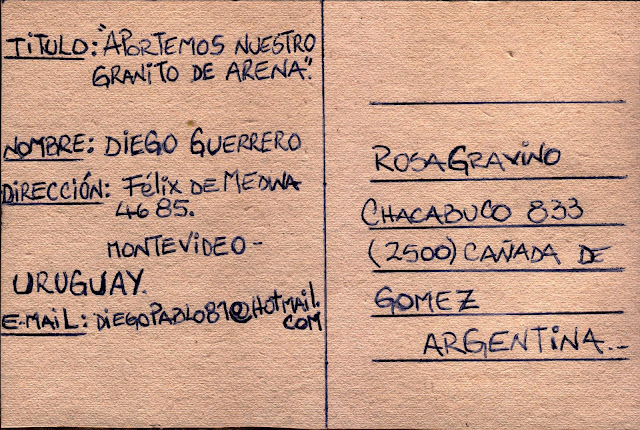 TÍTULO: "APORTEMOS NUESTRO
GRANITO DE ARENA".
NOMBRE: DIEGO GUERRERO
DIRECCIÓN: FÉLIX DE MEDINA
4685.
MONTEVIDEO-
URUGUAY.
E-MAIL: DIEGOPABLO81@HOTMAIL.
COM
ROSA GRAVINO
CHACABUCO 833
(2500) CAÑADA DE
GOMEZ
ARGENTINA..-